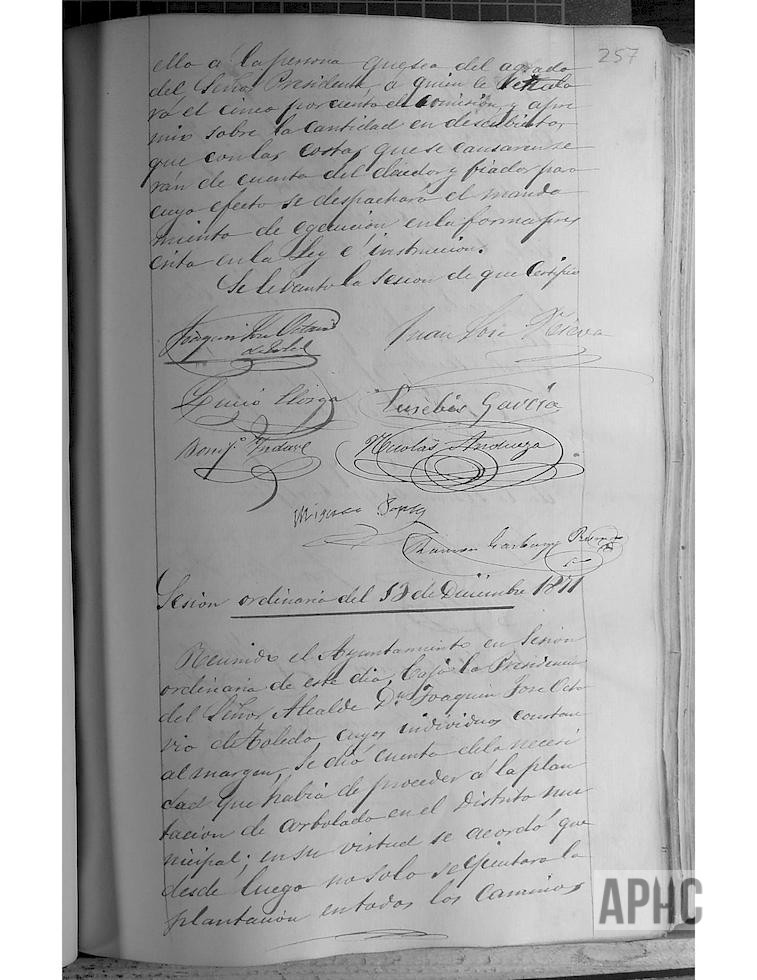 257
ello á la persona que sea del agrado
del Señor Presidente, á quien le
rá el cinco por ciento de comision, y apre
mio sobre la cantidad en descubierto,
que con las costas que se causaren se
rán de cuenta del deudor y fiador para
cuyo efecto se despachará el manda
miento de egecucion en la forma pres
crita en la Ley é instruccion.
Se levantó la sesion de que Certifico
Joaquin José Octavio
de Toledo
Juan José Nieva
Lucio
Eusebio Garcia
Bonif.º
Nicolas Andueza
Ramon
Sesion ordinaria del 13 de Diciembre 1871
Reunido el Ayuntamiento en Sesion
ordinaria de este dia, bajo la Presidencia
del Señor Alcalde D.n Joaquin José Octa
vio de Toledo cuyos individuos constan
al margen, se dió cuenta de la necesi
dad que habia de proceder á la plan
tacion de arbolado en el Distrito mu
nicipal; en su virtud se acordó que
desde luego no solo se ejecutara la
plantacion en todos los Caminos
APHC